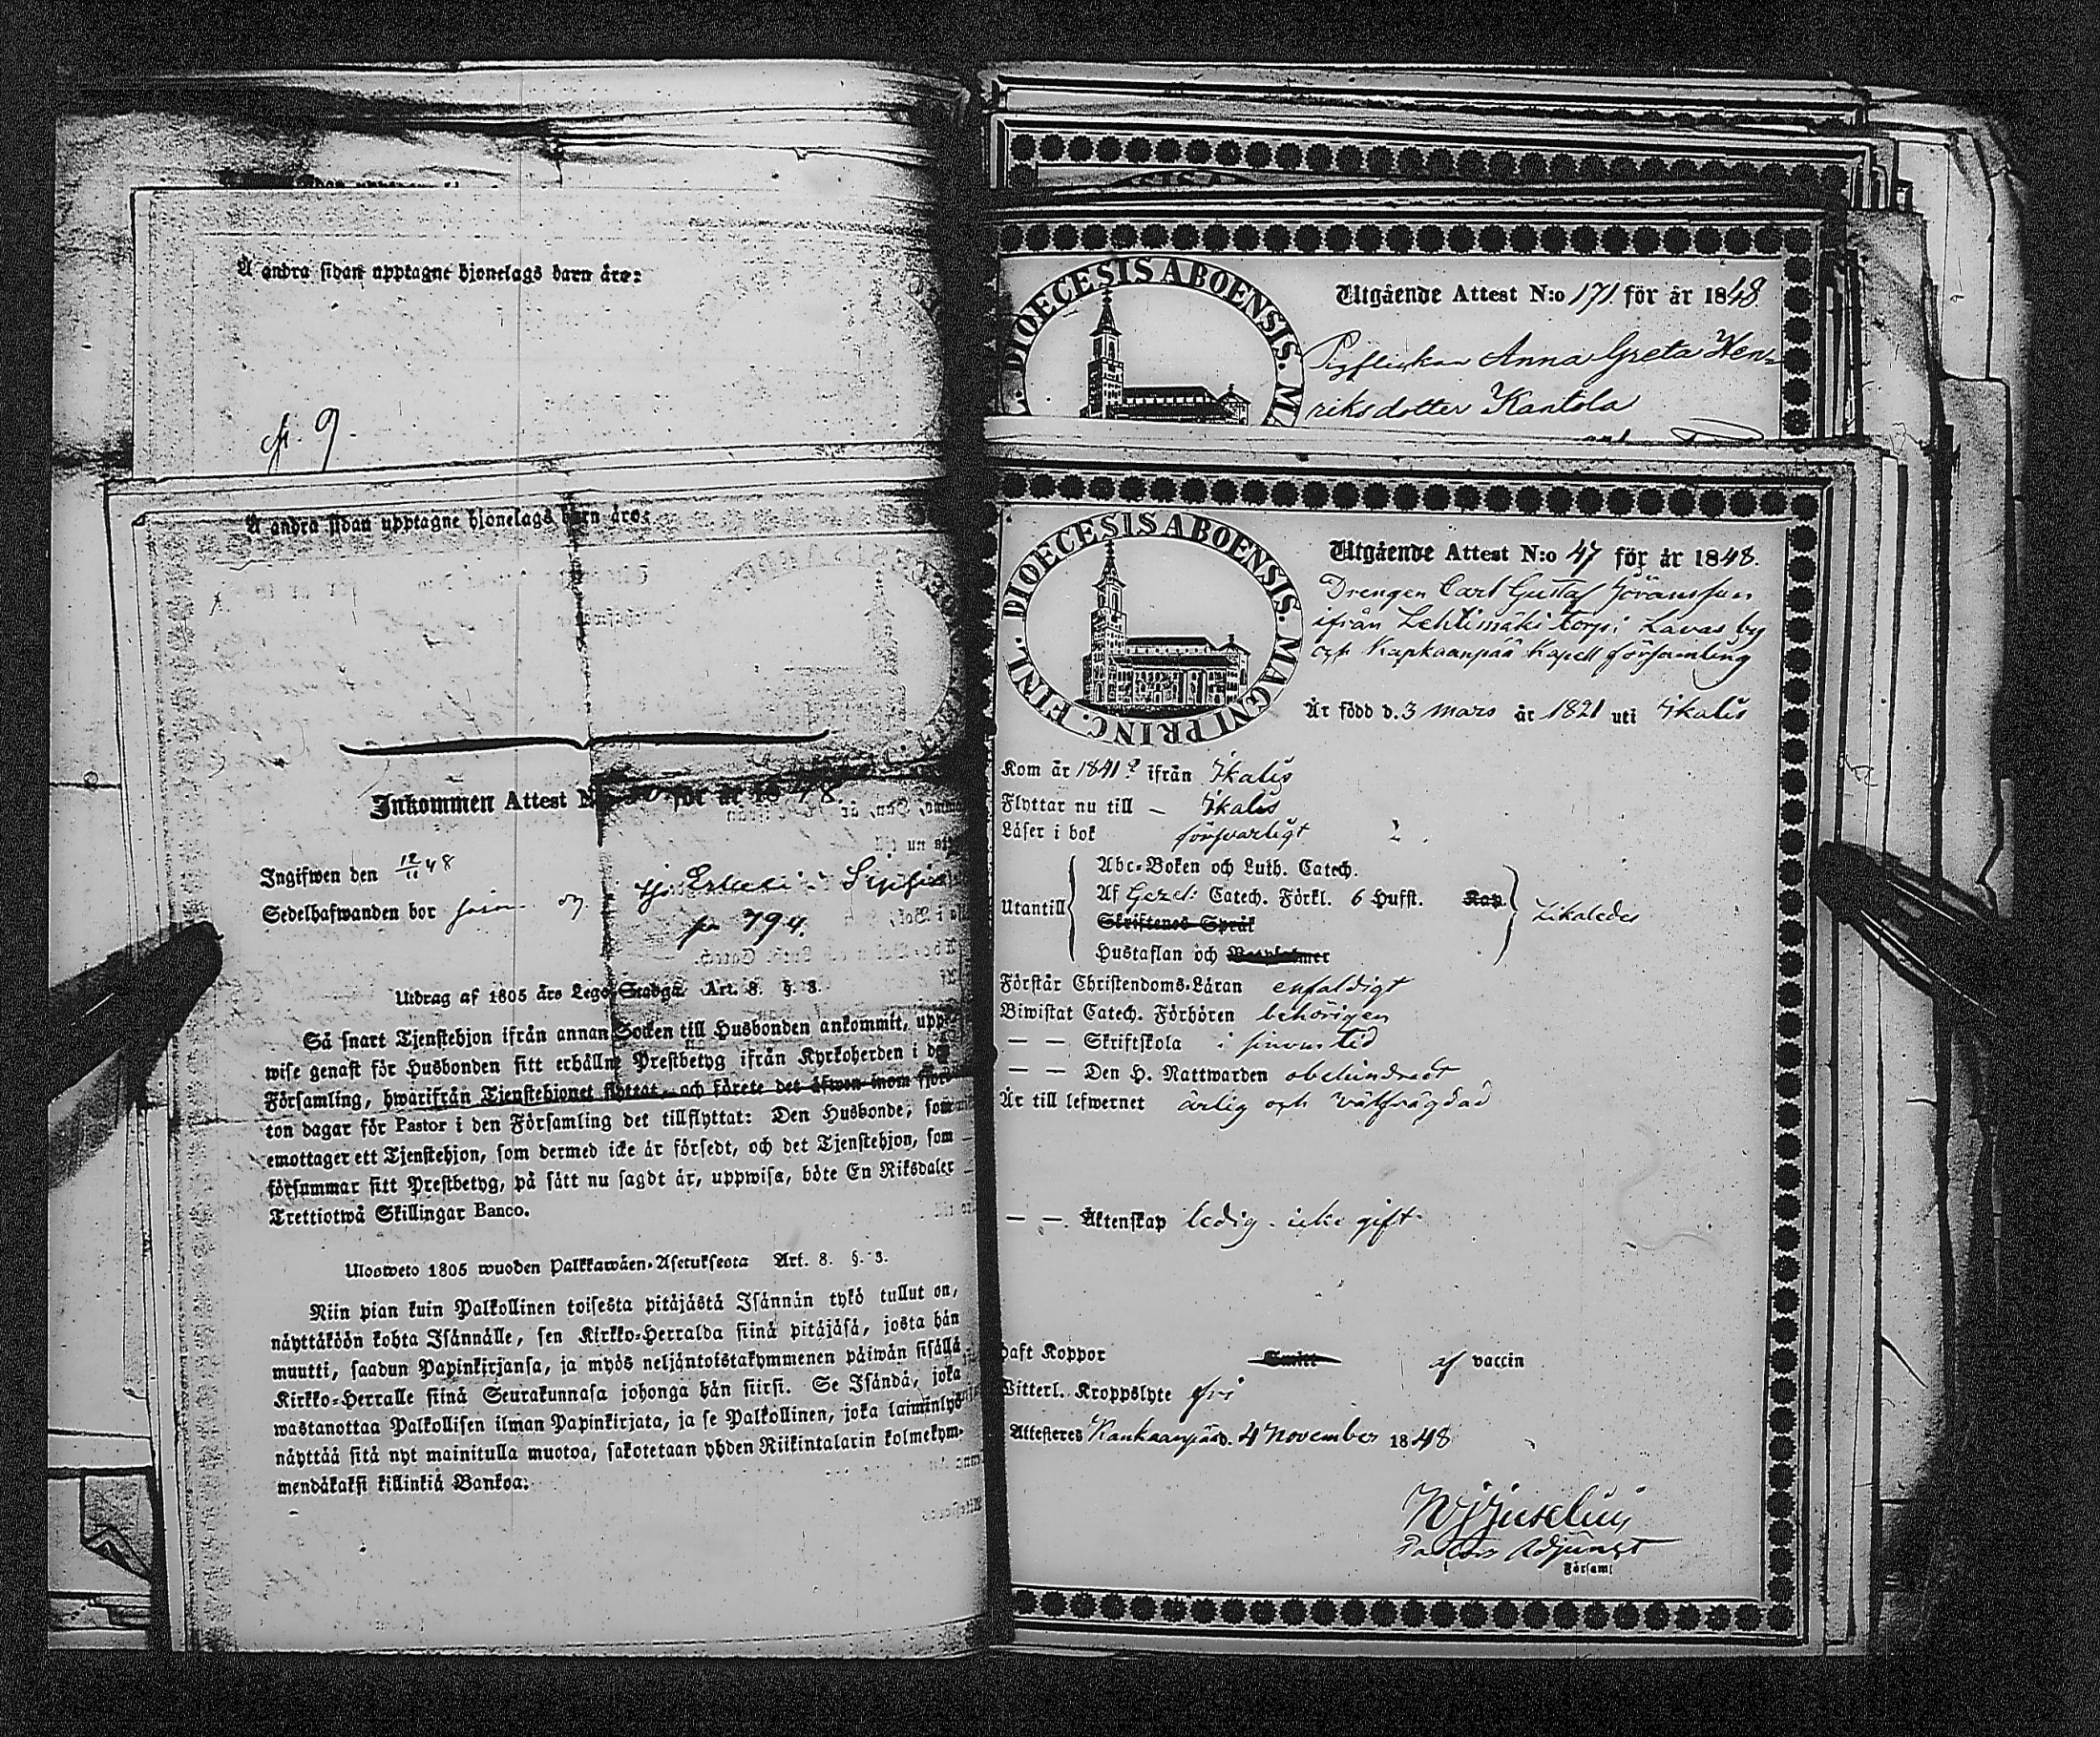 Å andra sidan upptagne hjonelags barn äro:
fr. 9.
Å andra sidan upptagne hjonelags barn äro:
Inkommen Attest N för år 1848.
Ingifwen den 12/11 48
Sedelhafwanden bor
794.
Utdrag af 1805 års Lego-Stadga Art. 8. §. 3.
Så snart Tjenstehjon ifrån annan Socken till Husbonden ankommit, upp-
wise genast för Husbonden sitt erhållne Prestbetyg ifrån Kyrkoherden i
Församling, hwarifrån Tjenstehjonet flyttat, och förete det äfwen inom fjor-
ton dagar för Pastor i den Församling det tillflyttat: Den Husbonde, som
emottager ett Tjenstehjon, som dermed icke är försedt, och det Tjenstehjon, som
försummar sitt Prestbetyg, på sätt nu sagdt är, uppwisa, böte En Riksdaler
Trettiotwå Skillingar Banco.
Ulosweto 1805 wuoden Palkkawäen-Asetuksesta Art. 8. §. 3.
Niin pian kuin Palkollinen toisesta pitäjästä Isännän tykö tullut on,
näyttäköön kohta Isännälle, sen Kirkko-Herralda siinä pitäjäsä, josta hän
muutti, saadun Papinkirjansa, ja myös neljäntoistakymmenen päiwän sisällä
Kirkko-Herralle siinä Seurakunnasa johonga hän siirsi. Se Isändä, joka
wastanottaa Palkollisen ilman Papinkirjata, ja se Palkollinen, joka laiminlyö
näyttää sitä nyt mainitulla muotoa, sakotetaan yhden Riikintalarin kolmekym-
mendäkaksi killinkiä Bankoa.
DIOECESIS ABOENSIS. MA
Utgående Attest N:o 171 för år 1848.
Pigflickan Anna Greta Hen-
riksdotter Kantola
DIOECESIS ABOENSIS. MAGNI PRINC. FINL.
Utgående Attest N:o 47 för år 1848.
Drengen Carl Gustaf Göransson
ifrån Lehtimäki torp i Lavas by
och Kankaanpää Kapell församling
Är född d. 3 mars år 1821 uti Ikalis
Kom år 1841 ifrån Ikalis
Flyttar nu till – Ikalis
Läser i bok försvarligt
Abc-Boken och Luth. Catech.
Utantill Af Gezel: Catech. Förkl. 6 Hufst. Kap. Likaledes
Skriftenes Språk
Hustaflan och
Förstår Christendoms-Läran enfaldigt
Biwistat Catech. Förhören behörigen
— — Skriftskola i sinom tid
— — Den H. Nattwarden obehindradt
Är till lefwernet ärlig och wälfrägdad
— —. Äktenskap ledig - icke gift.
Haft Koppor af vaccin
Witterl. Kroppslyte fri
Attesteres Kankaanpää d. 4 November 1848
Pastors Adjunct
i Församl